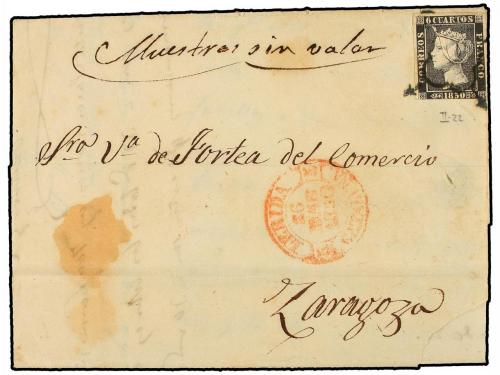 Muestras sin valor
CORREOS 6 CUARTOS FRANCO
1850
II-22
Sra Va de Fortea del Comercio
LERIDA
26
1850
Zaragoza